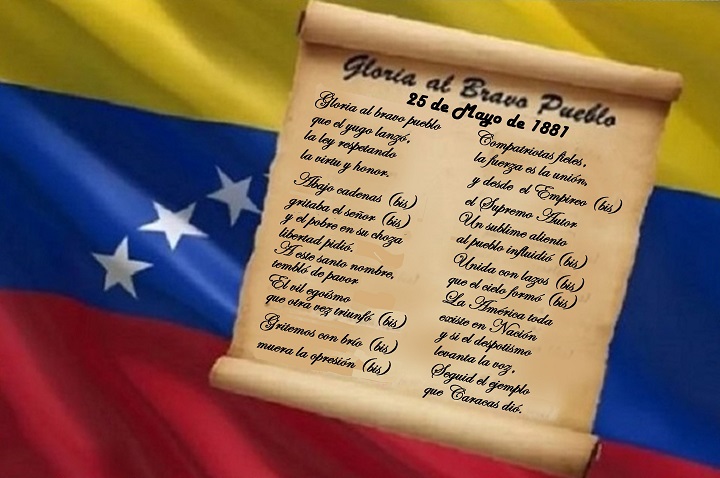 Gloria al Bravo Pueblo
25 de Mayo de 1881
Gloria al bravo pueblo
que el yugo lanzó,
la ley respetando
la virtu y honor.
Abajo cadenas (bis)
gritaba el señor (bis)
y el pobre en su choza
libertad pidió.
A este santo nombre,
tembló de pavor
El vil egoísmo
que otra vez triunfó (bis)
Gritemos con brío (bis)
muera la opresión (bis)
Compatriotas fieles,
la fuerza es la unión,
y desde el Empireo (bis)
el Supremo Autor
Un sublime aliento
al pueblo influidió (bis)
Unida con lazos (bis)
que el cielo formó (bis)
La América toda
existe en Nación
y si el despotismo
levanta la voz,
Seguid el ejemplo
que Caracas dió.